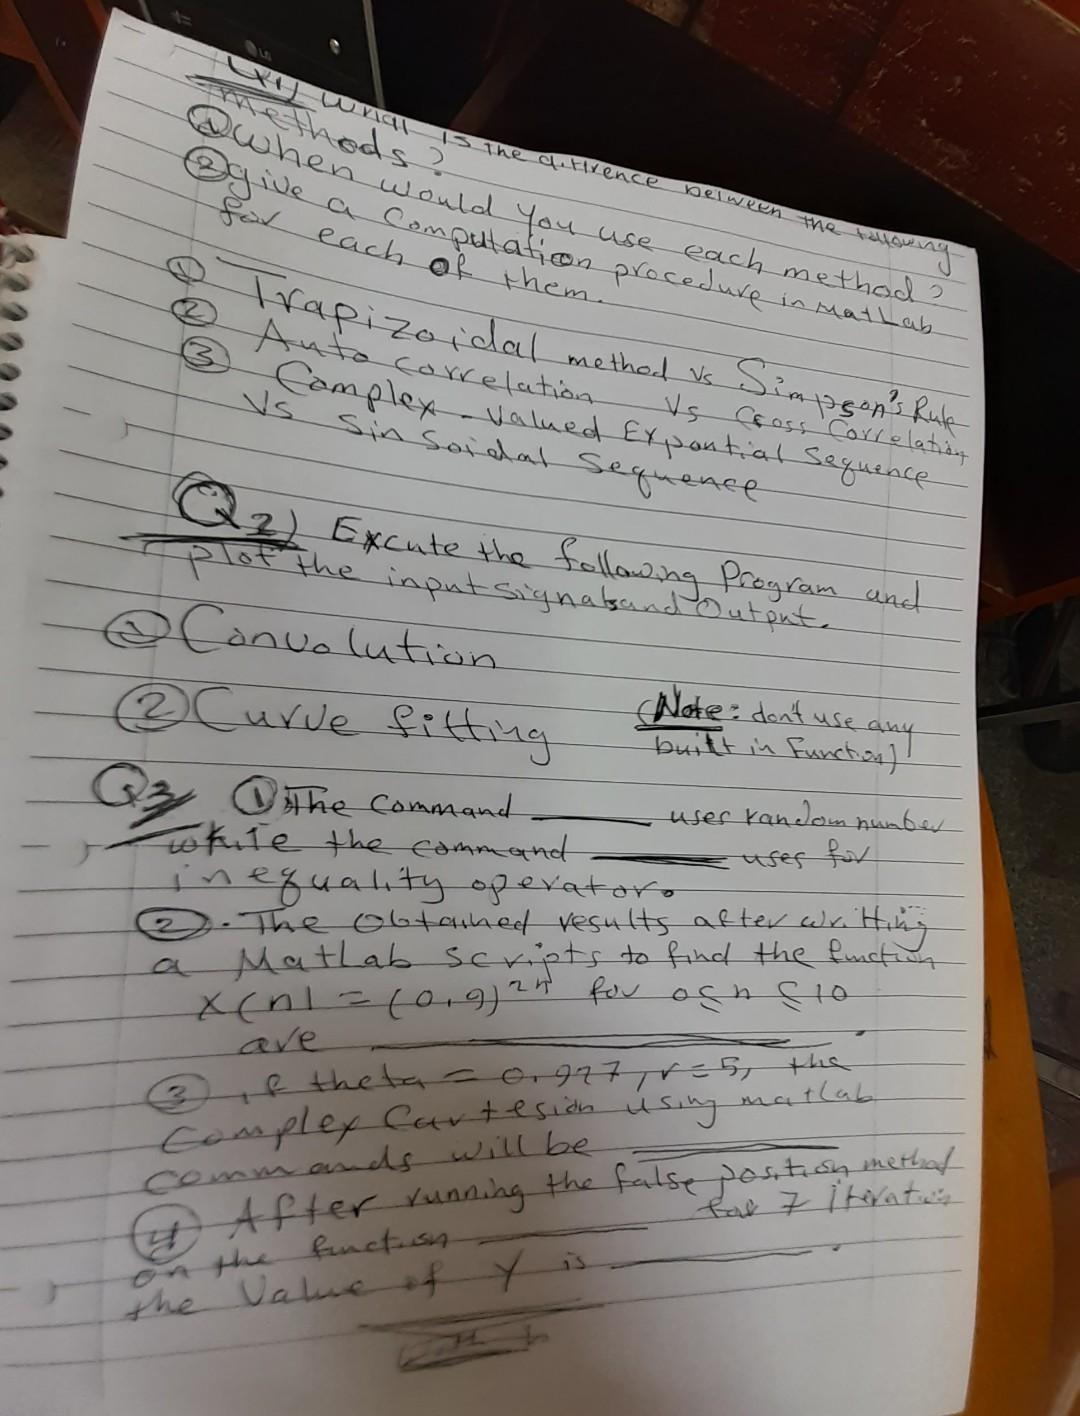 Q1) What is the difirence between the following
methods?
① When would you use each method?
② give a Computation procedure in MatLab
for each of them.
① Trapizoidal method vs Simpson's Rule
② Auto correlation Vs Cross Correlation
③ Complex-Valued Expontial Sequence
Vs Sinsoidal Sequence
Q2) Excute the following Program and
plot the input signals and Output.
① Convolution
② Curve fitting (Note: don't use any
built in Function)
Q3 ① The Command ______ uses random number
while the command ______ uses for
inequality operator.
②. The Obtained results after writting
a MatLab scripts to find the function
x(n) = (0.9)^2n for 0≤n≤10
are ______.
③ if theta = 0.927, r=5, the
Complex Cartesian using matlab
commands will be ______
④ After running the false position method
on the function ______ for 7 iteration
the Value of Y is ______.